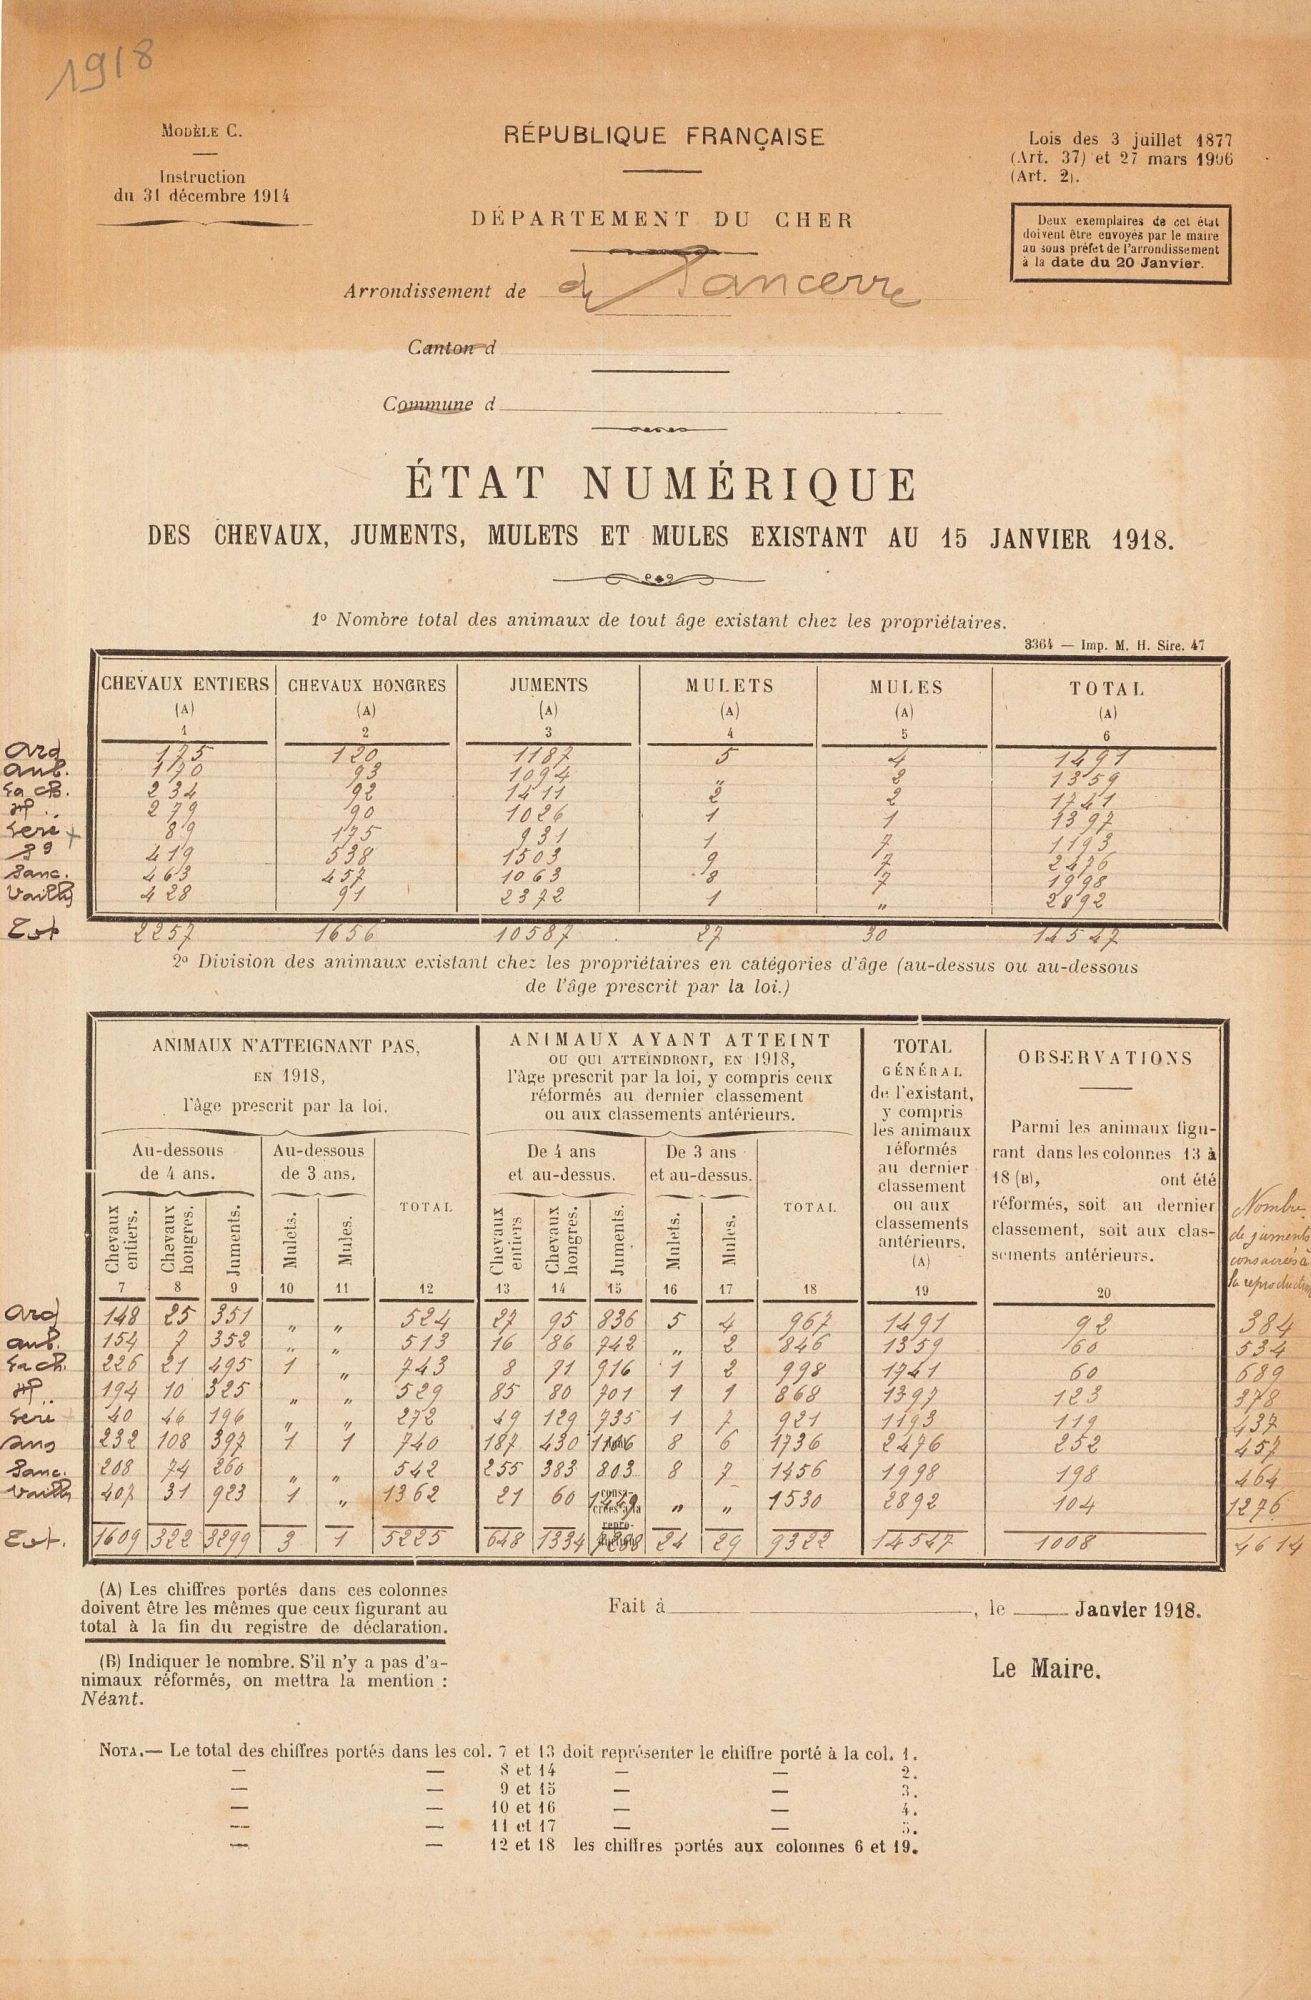 1918
MODÈLE C.
Instruction
du 31 décembre 1914
RÉPUBLIQUE FRANÇAISE
DÉPARTEMENT DU CHER
Lois des 3 juillet 1877
(Art. 37) et 27 mars 1906
(Art. 2).
Deux exemplaires de cet état
doivent être envoyés par le maire
au sous préfet de l'arrondissement
à la date du 20 Janvier.
Arrondissement de de Sancerre
Canton d
Commune d
ÉTAT NUMÉRIQUE
DES CHEVAUX, JUMENTS, MULETS ET MULES EXISTANT AU 15 JANVIER 1918.
1º Nombre total des animaux de tout âge existant chez les propriétaires.
3364 — Imp. M. H. Sire. 47
CHEVAUX ENTIERS CHEVAUX HONGRES JUMENTS MULETS MULES TOTAL
(A) (A) (A) (A) (A) (A)
1 2 3 4 5 6
Arg 175 120 1187 5 4 1491
Aub. 170 93 1094 „ 2 1359
La Ch. 234 92 1411 2 2 1741
H... 279 90 1026 1 1 1397
Leré + 89 175 931 1 7 1193
Sg 419 538 1503 9 7 2476
Sanc. 463 457 1063 8 7 1998
Vailly 428 91 2372 1 „ 2892
Tot 2257 1656 10587 27 30 14547
2º Division des animaux existant chez les propriétaires en catégories d'âge (au-dessus ou au-dessous
de l'âge prescrit par la loi.)
ANIMAUX N'ATTEIGNANT PAS,
EN 1918,
l'âge prescrit par la loi.
ANIMAUX AYANT ATTEINT
OU QUI ATTEINDRONT, EN 1918,
l'âge prescrit par la loi, y compris ceux
réformés au dernier classement
ou aux classements antérieurs.
TOTAL
GÉNÉRAL
de l'existant,
y compris
les animaux
réformés
au dernier
classement
ou aux
classements
antérieurs.
(A)
OBSERVATIONS
Parmi les animaux figu-
rant dans les colonnes 13 à
18 (B), ont été
réformés, soit au dernier
classement, soit aux clas-
sements antérieurs.
Nombre
de juments
consacrées à
la reproduction
Au-dessous
de 4 ans.
Au-dessous
de 3 ans.
TOTAL
De 4 ans
et au-dessus.
De 3 ans
et au-dessus.
TOTAL
Chevaux entiers. Chevaux hongres. Juments. Mulets. Mules. Chevaux entiers Chevaux hongres. Juments. Mulets. Mules.
7 8 9 10 11 12 13 14 15 16 17 18 19 20
Arg 148 25 351 „ „ 524 27 95 836 5 4 967 1491 92 384
Aub. 154 7 352 „ „ 513 16 86 742 „ 2 846 1359 60 534
La Ch. 226 21 495 1 „ 743 8 71 916 1 2 998 1741 60 689
H... 194 10 325 „ „ 529 85 80 701 1 1 868 1397 123 378
Leré + 40 46 196 „ „ 272 49 129 735 1 7 921 1193 119 437
232 108 397 1 1 740 187 430 1106 8 6 1736 2476 252 457
Sanc. 208 74 260 „ „ 542 255 383 803 8 7 1456 1998 198 464
Vailly 407 31 923 1 „ 1362 21 60 1449 „ „ 1530 2892 104 1276
consa-
crées à la
repro-
Tot. 1609 322 3299 3 1 5225 648 1334 7288 24 29 9322 14547 1008 4614
(A) Les chiffres portés dans ces colonnes
doivent être les mêmes que ceux figurant au
total à la fin du registre de déclaration.
(B) Indiquer le nombre. S'il n'y a pas d'a-
nimaux réformés, on mettra la mention :
Néant.
Fait à , le Janvier 1918.
Le Maire.
NOTA.— Le total des chiffres portés dans les col. 7 et 13 doit représenter le chiffre porté à la col. 1.
— — 8 et 14 — — 2.
— — 9 et 15 — — 3.
— — 10 et 16 — — 4.
— — 11 et 17 — — 5.
— — 12 et 18 les chiffres portés aux colonnes 6 et 19.